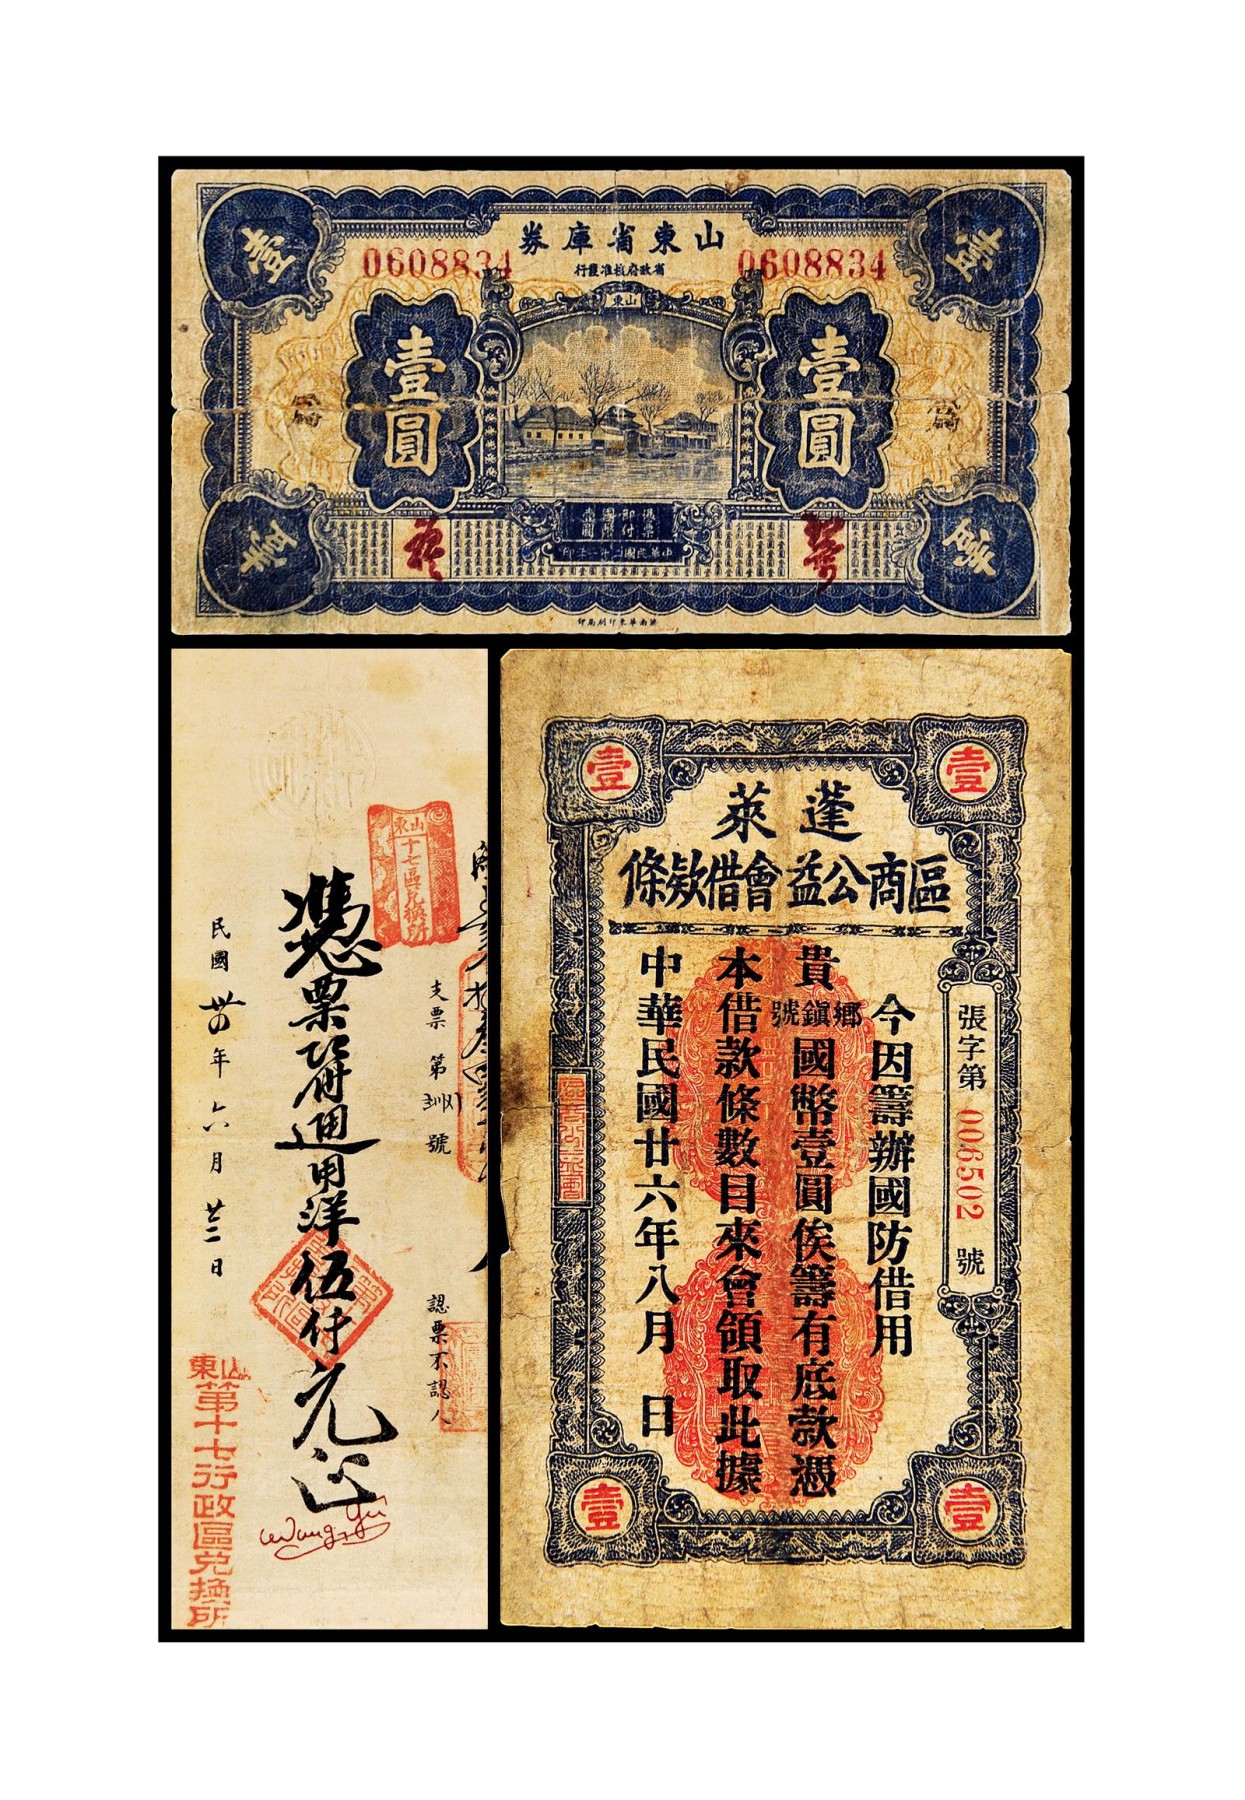 山東省庫券
0608834
0608834
省政府核准發行
山東
壹
壹
壹圓
壹圓
憑票
即付
國幣
壹圓
壹
壹
濟南華東印刷局印
山東
十七區兌換所
支票第
號
認票不認人
憑票祈付通用洋伍仟元正
民國卅四年六月廿二日
山東
第十七行政區兌換所
Wang Yu
壹
壹
蓬萊
區商公益會借欵條
張字第 006502 號
今因籌辦國防借用
貴鄉鎮號國幣壹圓俟籌有底款憑
本借款條數目來會領取此據
中華民國廿六年八月 日
壹
壹